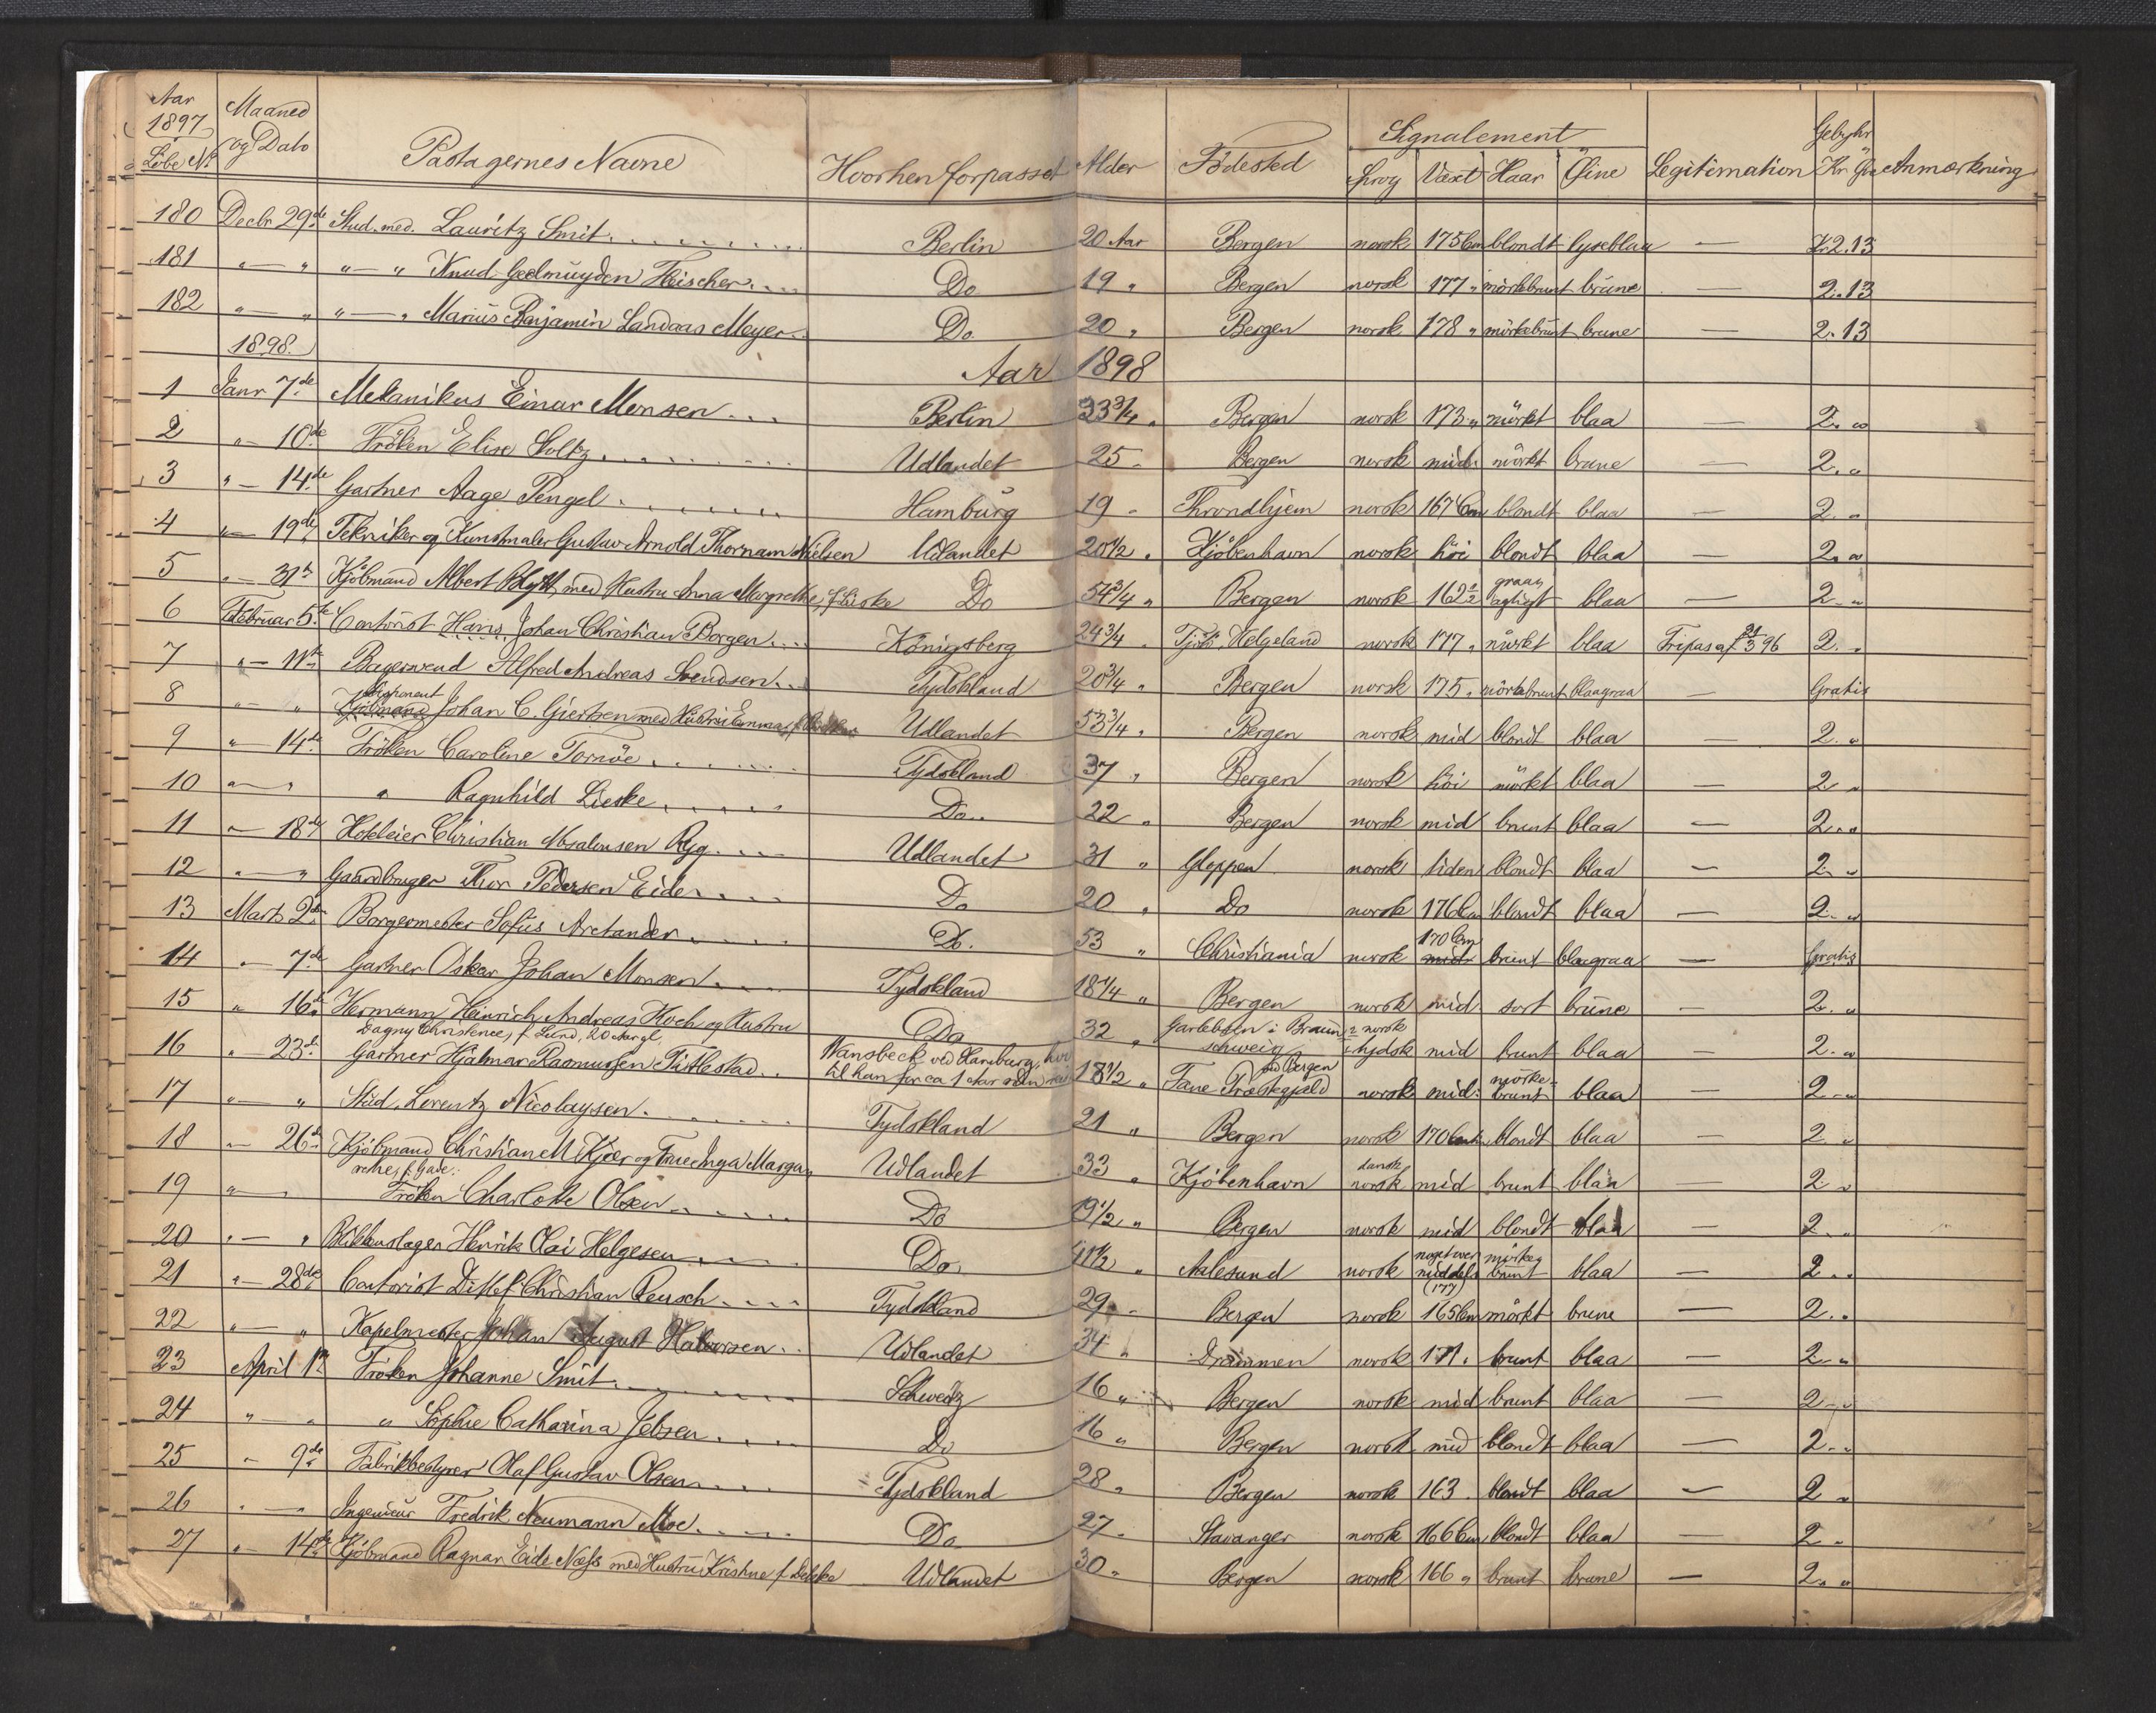 Aar 1897 Löbe No. Maaned og Dato Passagernes Navne Hvorhen forpasset Alder Födested Signalement Sprog Væxt Haar Öine Legitimation Gebyhr Kr. Öre Anmærkning
180 Decbr 29de Stud. med. Lauritz Smit Berlin 20 Aar Bergen norsk 175 Cm blondt lyseblaa — Kr 2.13
181 " — " " — " Knud Geelmuyden Fleischer Do 19 " Bergen norsk 177 " mörkebrunt brune — 2.13
182 " — " " — " Marius Benjamin Landaas Meyer Do 20 " Bergen norsk 178 " mörkebrunt brune — 2.13
1898. Aar 1898
1 Janr 7de Mekanikus Einar Monsen Berlin 23 3/4 " Bergen norsk 173 " mörkt blaa — 2. "
2 " — 10de Fröken Elise Stoltz Udlandet 25 " Bergen norsk mid. mörkt brune — 2. "
3 " — 14de Gartner Aage Pengel Hamburg 19 " Throndhjem norsk 167 Cm blondt blaa — 2. "
4 " — 19de Tekniker og Kunstmaler Gustav Arnold Thornam Nielsen Udlandet 20 1/2 " Kjöbenhavn norsk höi blondt blaa — 2. "
5 " — 31te Kjöbmand Albert Blyth med Hustru Anna Margrethe, f. Lieske Do 54 3/4 " Bergen norsk 162 1/2 graaagtigt blaa — 2. "
6 Februar 5te Contorist Hans Johan Christian Borgen Königsberg 24 3/4 " Tjötö, Helgeland norsk 177 " mörkt blaa Fripas af 21/3 96 2. "
7 " — 11te Bagersvend Alfred Andreas Svendsen Tydskland 20 3/4 " Bergen norsk 175 " mörkebrunt blaagraa — Gratis
8 " — " Kjöbmand Disponent Johan C. Giertsen med Hustru Emma, f. Udlandet 53 3/4 " Bergen norsk mid blondt blaa — 2. "
9 " — 14de Fröken Caroline Tornöe Tydskland 37 " Bergen norsk höi mörkt blaa — 2 "
10 " — " " Ragnhild Lieske Do. 22 " Bergen norsk mid brunt blaa — 2. "
11 " — 18de Hoteleier Christian Absalonsen Ryg Udlandet 31 " Gloppen norsk liden blondt blaa — 2. "
12 " — " Gaardbruger Thor Pedersen Eide Do 20 " Do norsk 176 Cm blondt blaa — 2. "
13 Marts 2den Borgermester Sofus Arctander Do. 53 " Christiania norsk mid 170 Cm brunt blaagraa — Gratis
14 " — 7de Gartner Oskar Johan Monsen Tydskland 18 1/4 " Bergen norsk mid sort brune — 2. "
15 " 16de Hermann Heinrich Andreas Koch og Hustru
Dagny Christence, f. Lund, 20 Aar gl. Do 32 " Garlebsen i Braunschweig norsk tydsk mid brunt blaa — 2. "
16 " — 23de Gartner Hjalmar Rasmussen Titlestad Wansbeck ved Hamburg, hvor
til han for ca 1 Aar siden 18 1/2 " Fane Præstegjæld ved Bergen norsk mid. mörkebrunt blaa — 2. "
17 " — " Stud. Lorentz Nicolaysen Tydskland 21 " Bergen norsk 170 Cm blondt blaa — 2 "
18 " — 26de Kjöbmand Christian M Kjær og Frue Inga Margarethe, f. Gade Udlandet 33 " Kjöbenhavn dansk norsk mid brunt blaa — 2. "
19 " — " Fröken Charlotte Olsen Do 19 1/2 " Bergen norsk mid blondt blaa — 2. "
20 " — " Blikkenslager Henrik Olai Helgesen Do. 41 1/2 " Aalesund norsk noget over middels (177) mörkebrunt blaa — 2. "
21 " — 28de Contorist Ditlef Christian Reusch Tydskland 29 " Bergen norsk 165 Cm mörkt brune — 2. "
22 " — " Kapelmester Johan August Halvorsen Udlandet 34 " Drammen norsk 171. brunt blaa — 2. "
23 April 1ste Fröken Johanne Smit Schweitz 16 " Bergen norsk mid brunt blaa — 2. "
24 " — " " Sophie Catharina Jebsen Do 16 " Bergen norsk mid blondt blaa — 2. "
25 " — 9de Fabrikbestyrer Olaf Gustav Olsen Tydskland 28 " Bergen norsk 163 " blondt blaa — 2 "
26 " — " Ingenieur Fredrik Neumann Moe Do 27 " Stavanger norsk 166 Cm blondt blaa — 2 "
27 " — 14de Kjöbmand Ragnar Eide Næss med Hustru Kristine f. Udlandet 30 " Bergen norsk 166 " brunt brune — 2. "